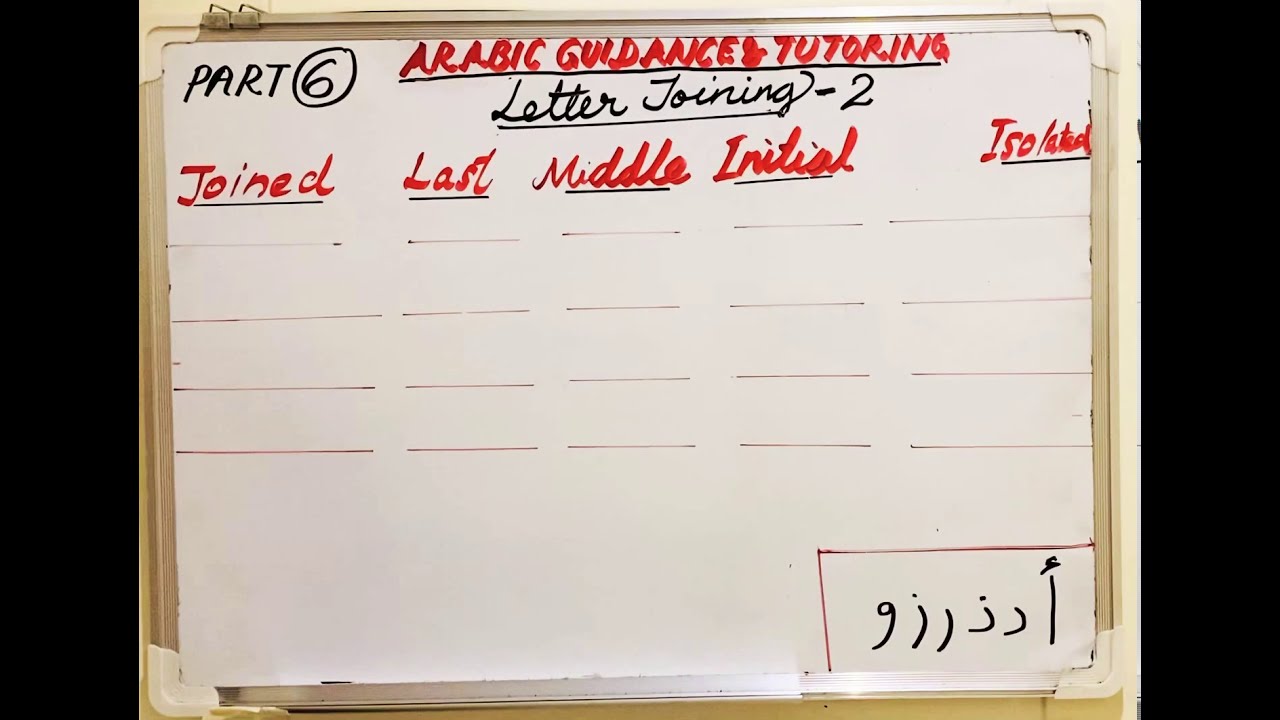 ARABIC GUIDANCE & TUTORING
PART 6
Letter Joining - 2
Joined Last Middle Initial Isolated
أ د ذ ر ز و